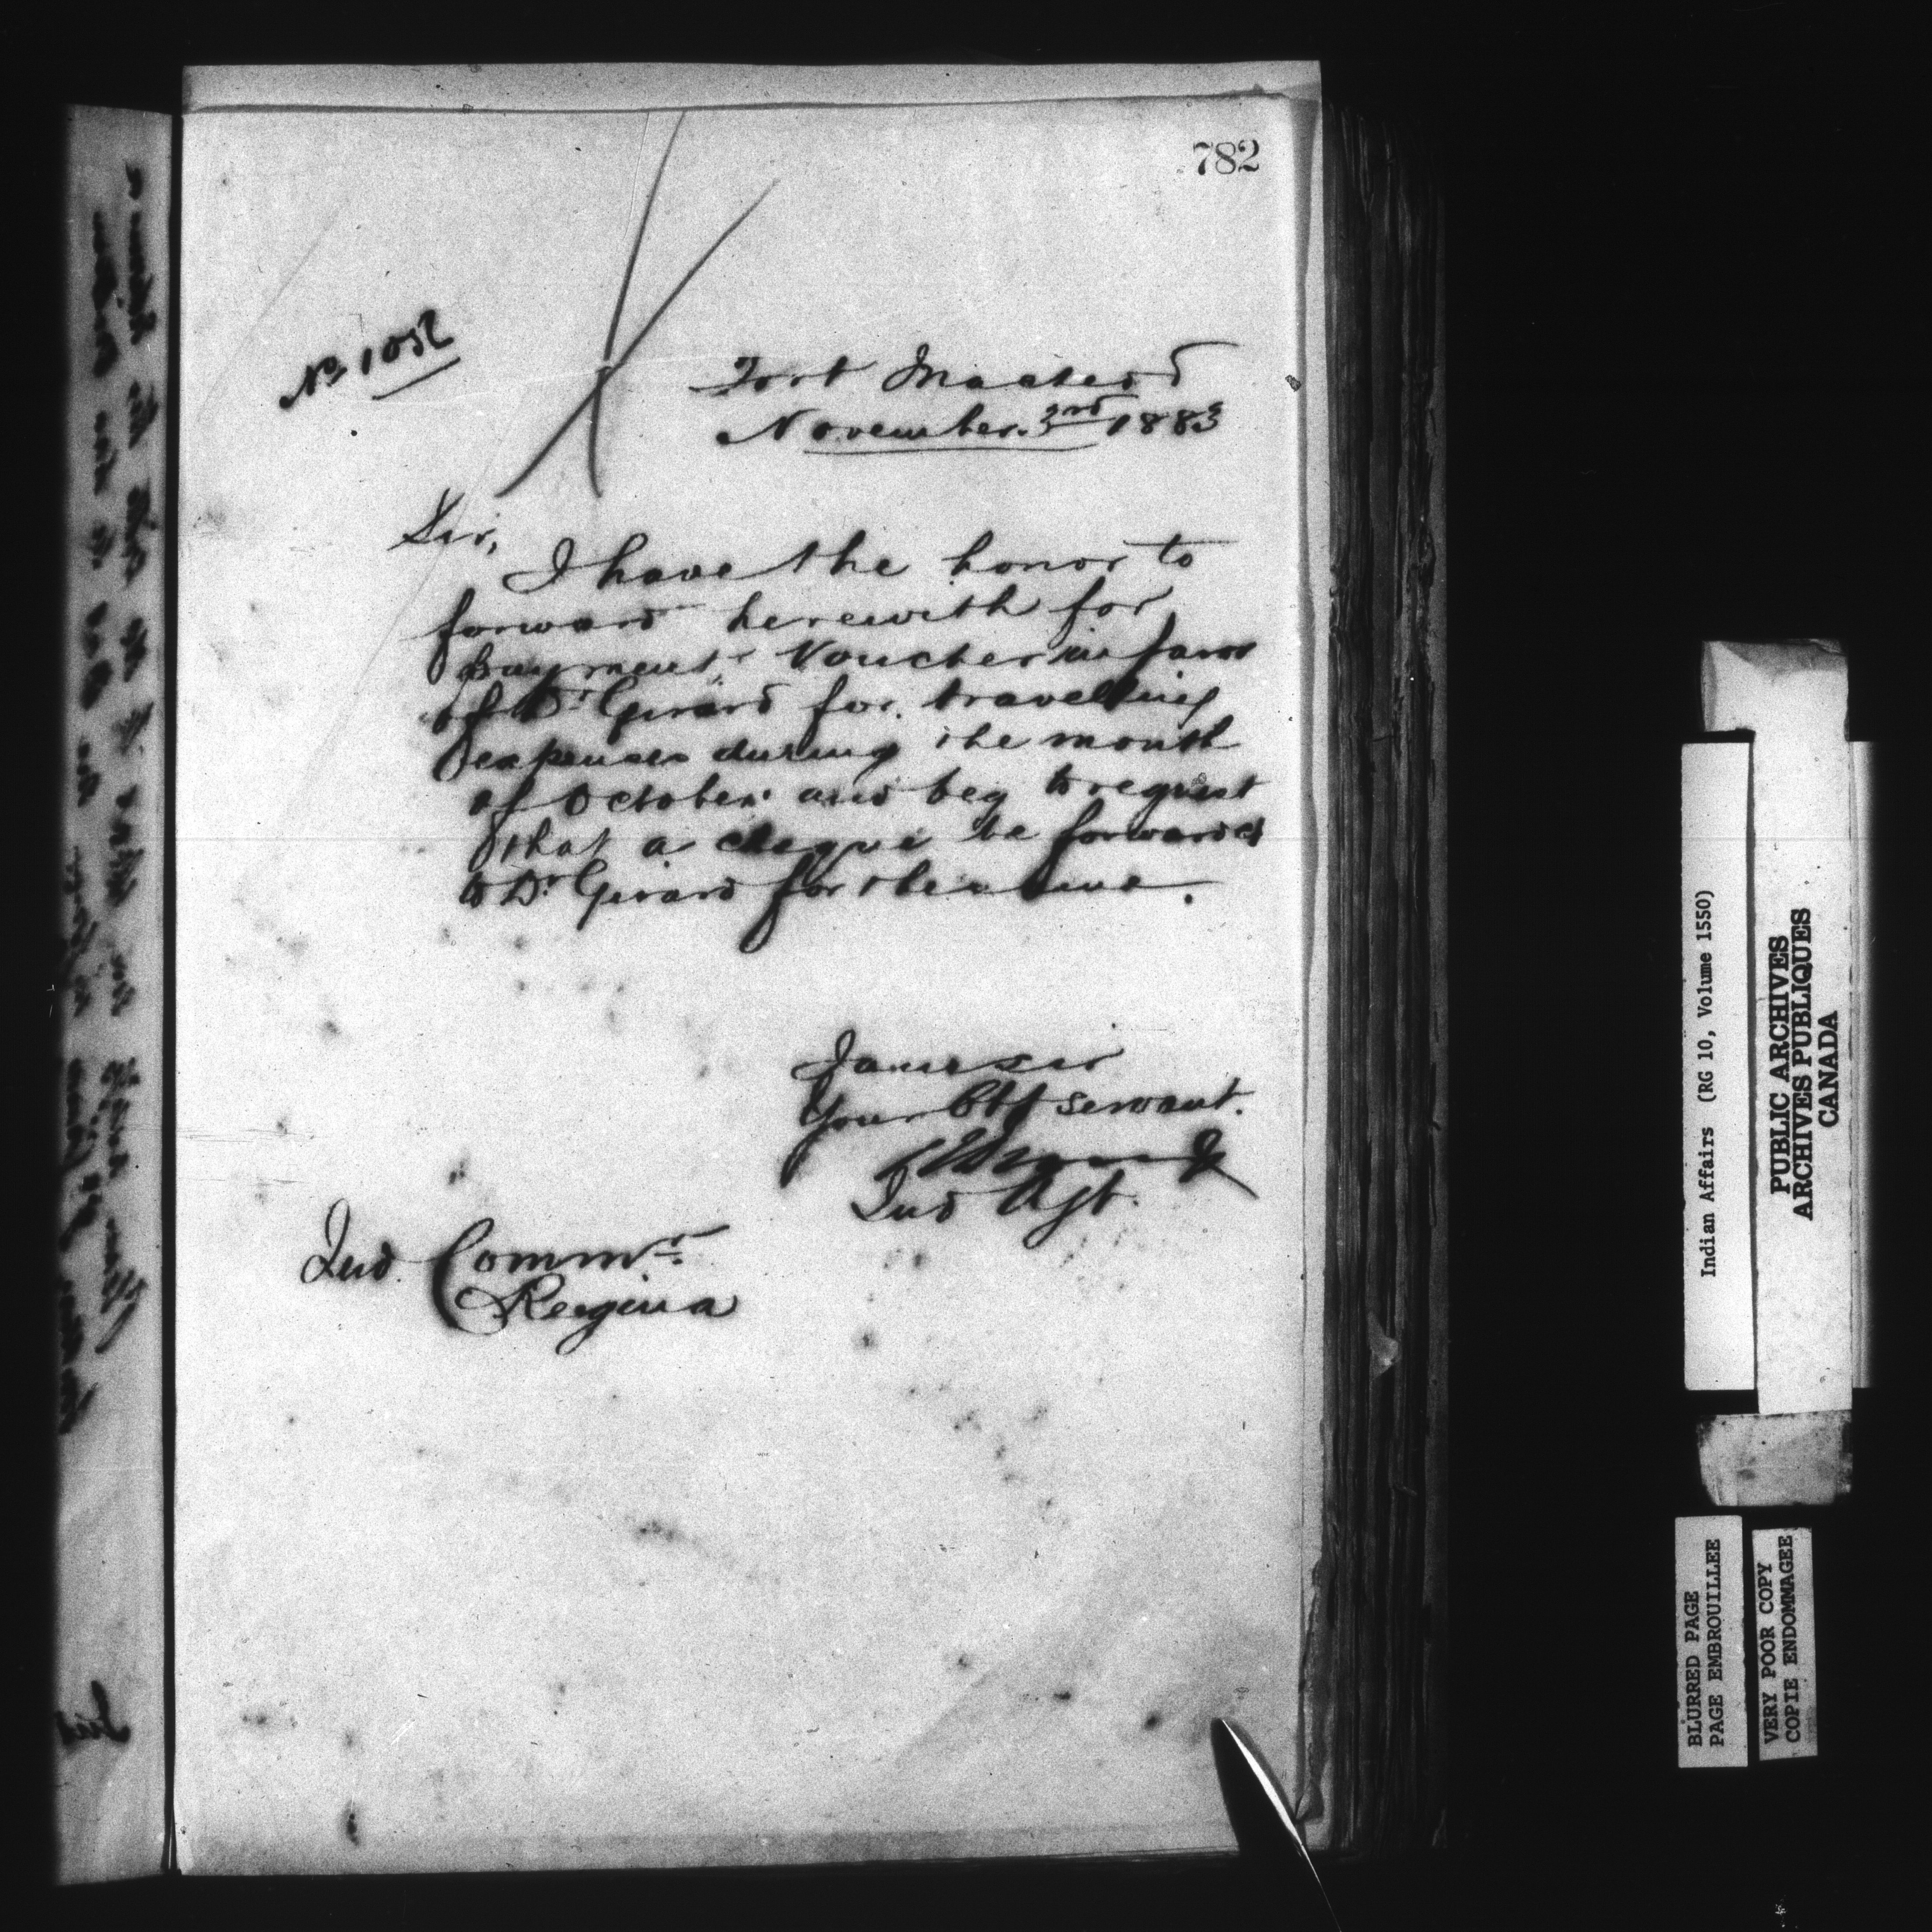 782
No 1052
Fort Macleod
November 3rd 1883
Sir,
I have the honor to
forward herewith for
payment, Voucher in favor
of Dr Girard for travelling
expenses during the month
of October and beg to request
that a cheque be forwarded
to Dr Girard for the same.
I am sir
Your Obt servant.
Ind Agt.
Ind. Commr.
Regina
Indian Affairs (RG 10, Volume 1550)
PUBLIC ARCHIVES
ARCHIVES PUBLIQUES
CANADA
BLURRED PAGE
PAGE EMBROUILLEE
VERY POOR COPY
COPIE ENDOMMAGEE